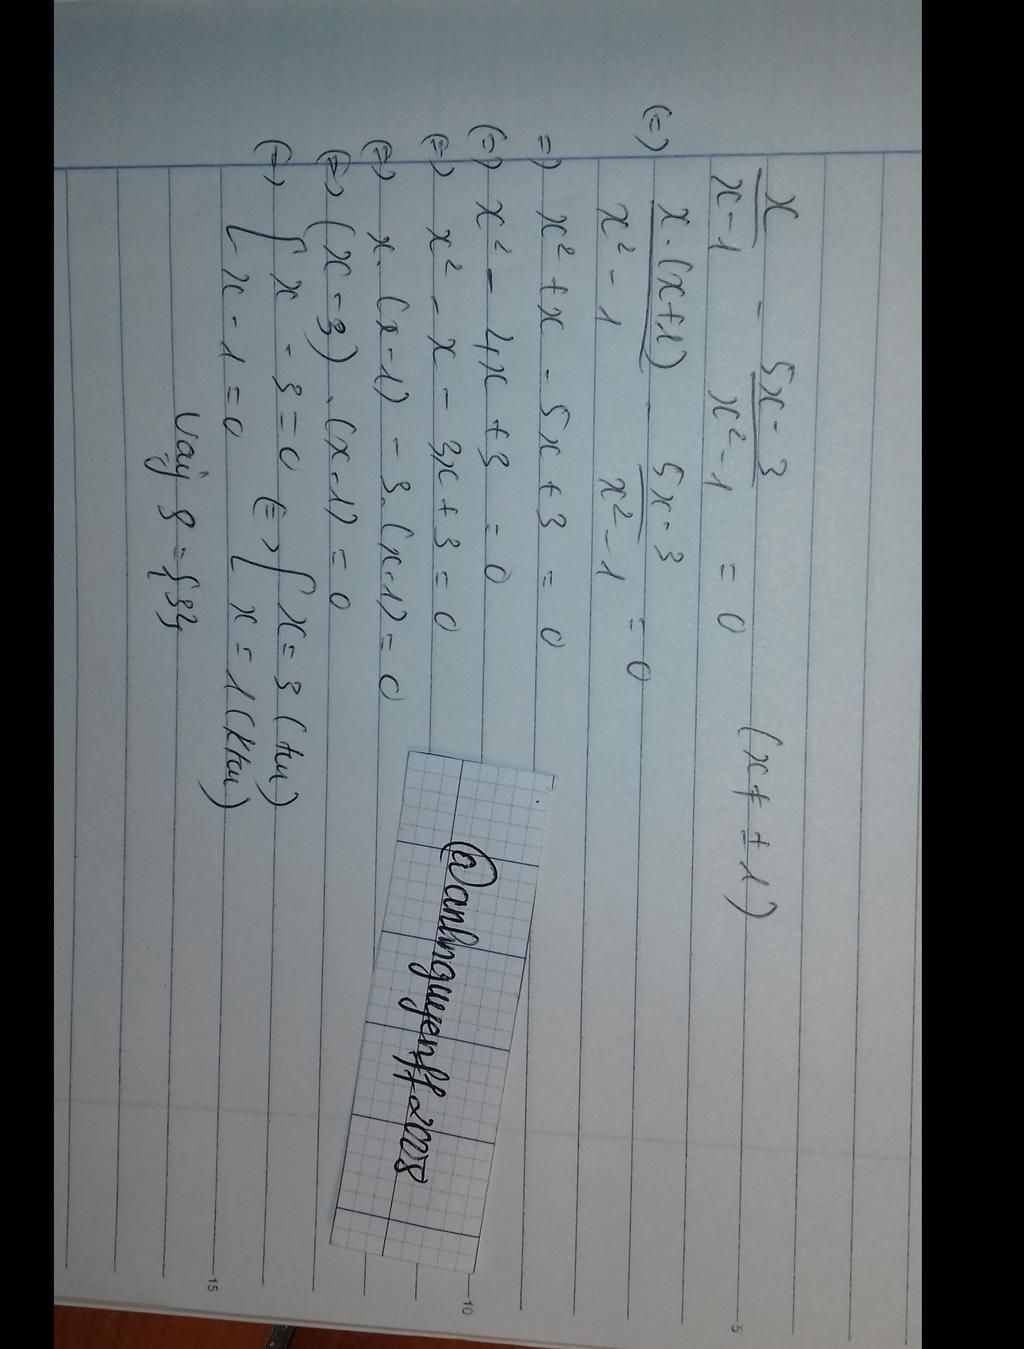 x/(x-1) - (5x-3)/(x²-1) = 0 (x ≠ ±1)
(=) x.(x+1)/(x²-1) - (5x-3)/(x²-1) = 0
=) x² + x - 5x + 3 = 0
(=) x² - 4x + 3 = 0
(=) x² - x - 3x + 3 = 0
(=) x.(x-1) - 3.(x-1) = 0
(=) (x-3).(x-1) = 0
(=) [ x - 3 = 0 (=) [ x = 3 (tm)
[ x - 1 = 0 [ x = 1 (ktm)
Vậy S = {3}
@anhnguyenff2008
5
10
15